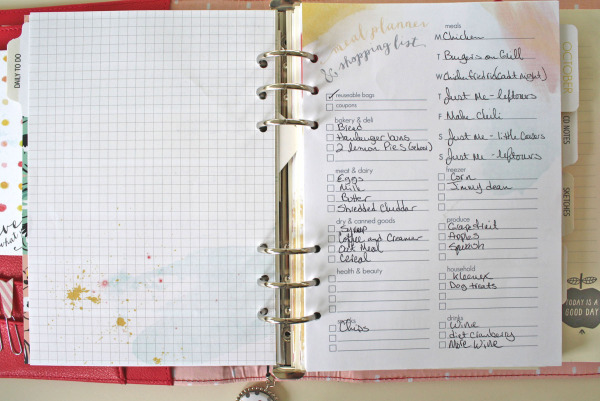 DAILY TO DO
meal planner
& shopping list
reuseable bags
coupons
bakery & deli
Bread
Hamburger buns
2 lemon Pies (school)
meat & dairy
Eggs
Milk
Butter
Shredded Cheddar
dry & canned goods
Syrup
Coffee and Creamer
Oat Meal
Cereal
health & beauty
snacks
Chips
meals
M Chicken
T Burgers on Grill
W
T Just Me - leftovers
F Make Chili
S Just Me - little Caesars
S Just Me - leftovers
freezer
Corn
Jimmy dean
produce
Grapefruit
Apples
Squash
household
Kleenex
Dog treats
drinks
Wine
diet Cranberry
More Wine
OCTOBER
NOTES
SKETCHES
TODAY IS A
GOOD DAY